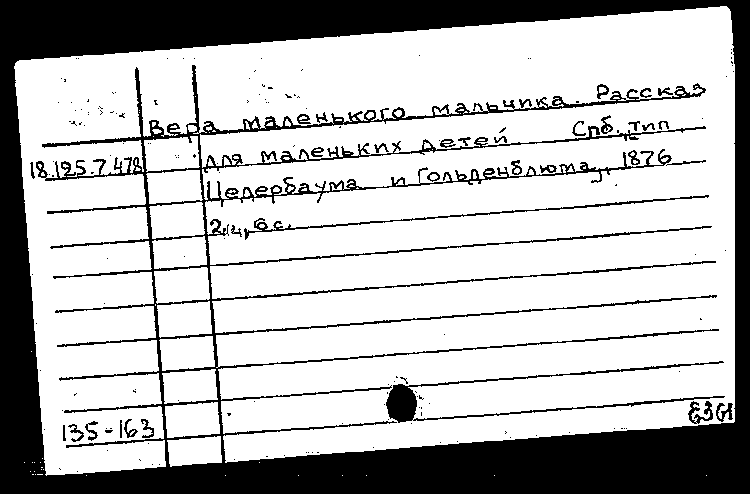 Вера маленького мальчика. Рассказ
18.195.7.478 для маленьких детей Спб., тип.
Цедербаума и Гольденблюма, 1876
6 с.
135-163